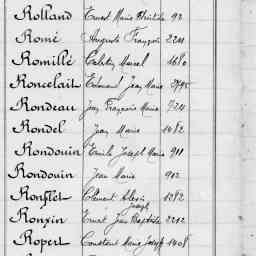 Rolland Ernest Marie Christide 92
Romé Auguste François 2211
Romillé Marcel 1680
Roncelait Edmond Jean Marie
Rondeau Jean François Marie
Rondel Jean Marie 1482
Rondouin Emile Joseph Marie 911
Rondouin Jean Marie 902
Ronflet Clément Alexis Joseph 1282
Ronxin Ernest Jean Baptiste 2212
Ropert Constant Marie Joseph 1408